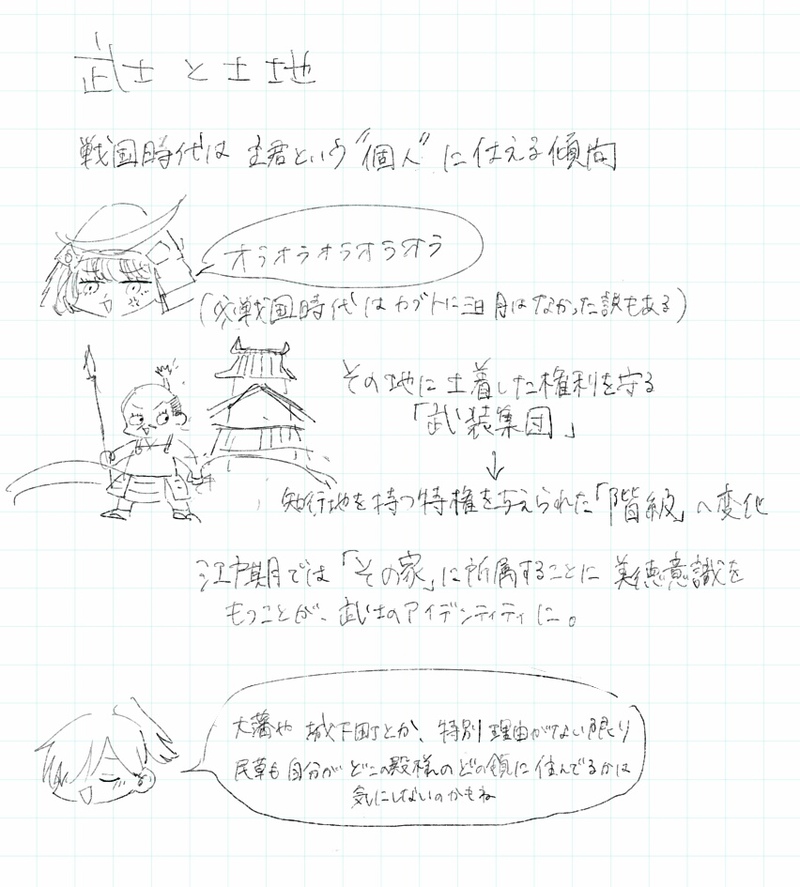 武士と土地
戦国時代は 主君という"個人"に仕える傾向
オラオラオラオラオラ
(※戦国時代はカブトに三日月はなかった説もある)
その地に土着した権利を守る
「武装集団」
↓
知行地を持つ特権を与えられた「階級」へ変化
江戸期では「その家」に所属することに美徳意識を
もつことが、武士のアイデンティティに。
大藩や城下町とか、特別理由がない限り
民草も自分がどこの殿様のどの領に住んでるかは
気にしないのかもね